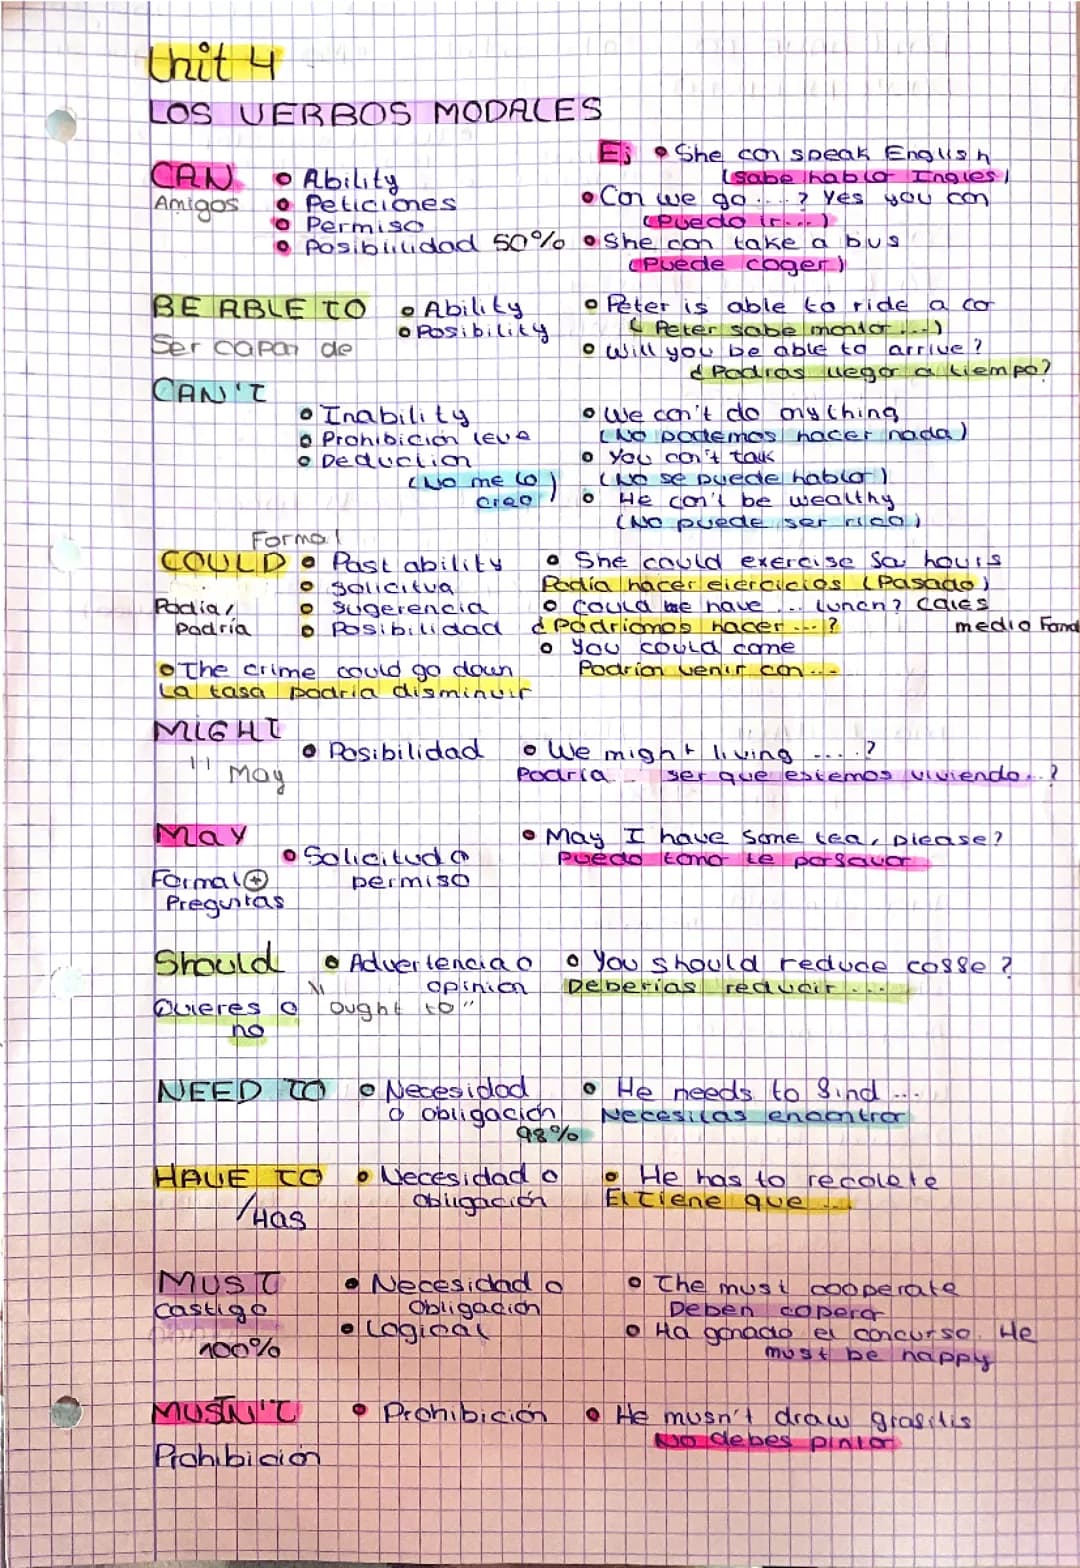 Unit 4
LOS VERBOS MODALES
CAN
Amigos
• Ability
• Peticiones
• Permiso
• Posibilidad 50%
Ej • She can speak English
(Sabe hablar Ingles)
• Can we go ....? Yes you can
(Puedo ir...)
• She can take a bus
(Puede coger)
BE ABLE TO
Ser capan de
• Ability
• Posibility
• Peter is able to ride a co
( Peter sabe montar ...)
• Will you be able to arrive?
¿Podras llegar a tiempo?
CAN'T
• Inability
• Prohibición leve
• Deduction
(No me lo
creo)
• We can't do anything
(No podemos hacer nada)
• You can't talk
(No se puede hablar)
• He can't be wealthy
(No puede ser rico)
Formal
COULD
Podia/
Podría
• Past ability
• Sugerencia
• Posibilidad
• She could exercise hours
Podia hacer ejercicios (Pasado)
• Could we have ...
¿Podriamos hacer ...?
medio Fand
• You could come
Podrian venir con...
• The crime could go down
La tasa podria disminuir
MIGHT
" May
• Posibilidad
• We might living ....?
Podria ser que estemos viviendo..?
May
Formal +
Preguntas
• Solicitud o
permiso
• May I have some tea, please?
Puedo tomar te porfavor
Should
Quieres o
no
• Advertencia o
opinion
" ought to"
• You should reduce cosse?
Deberias reducir ...
NEED TO
• Necesidad
o obligación
98%
• He needs to find ...
Necesitas encontrar
HAVE TO
/Has
• Necesidad o
Obligación
• He has to recolete
El tiene que ...
MUST
Castigo
100%
• Necesidad o
Obligación
• Logical
• The must cooperate
Deben coperar
• Ha ganado el concurso. He
must be happy
MUSTN'T
Prohibición
• Prohibición
• He musn't draw grafitis
No debes pintar